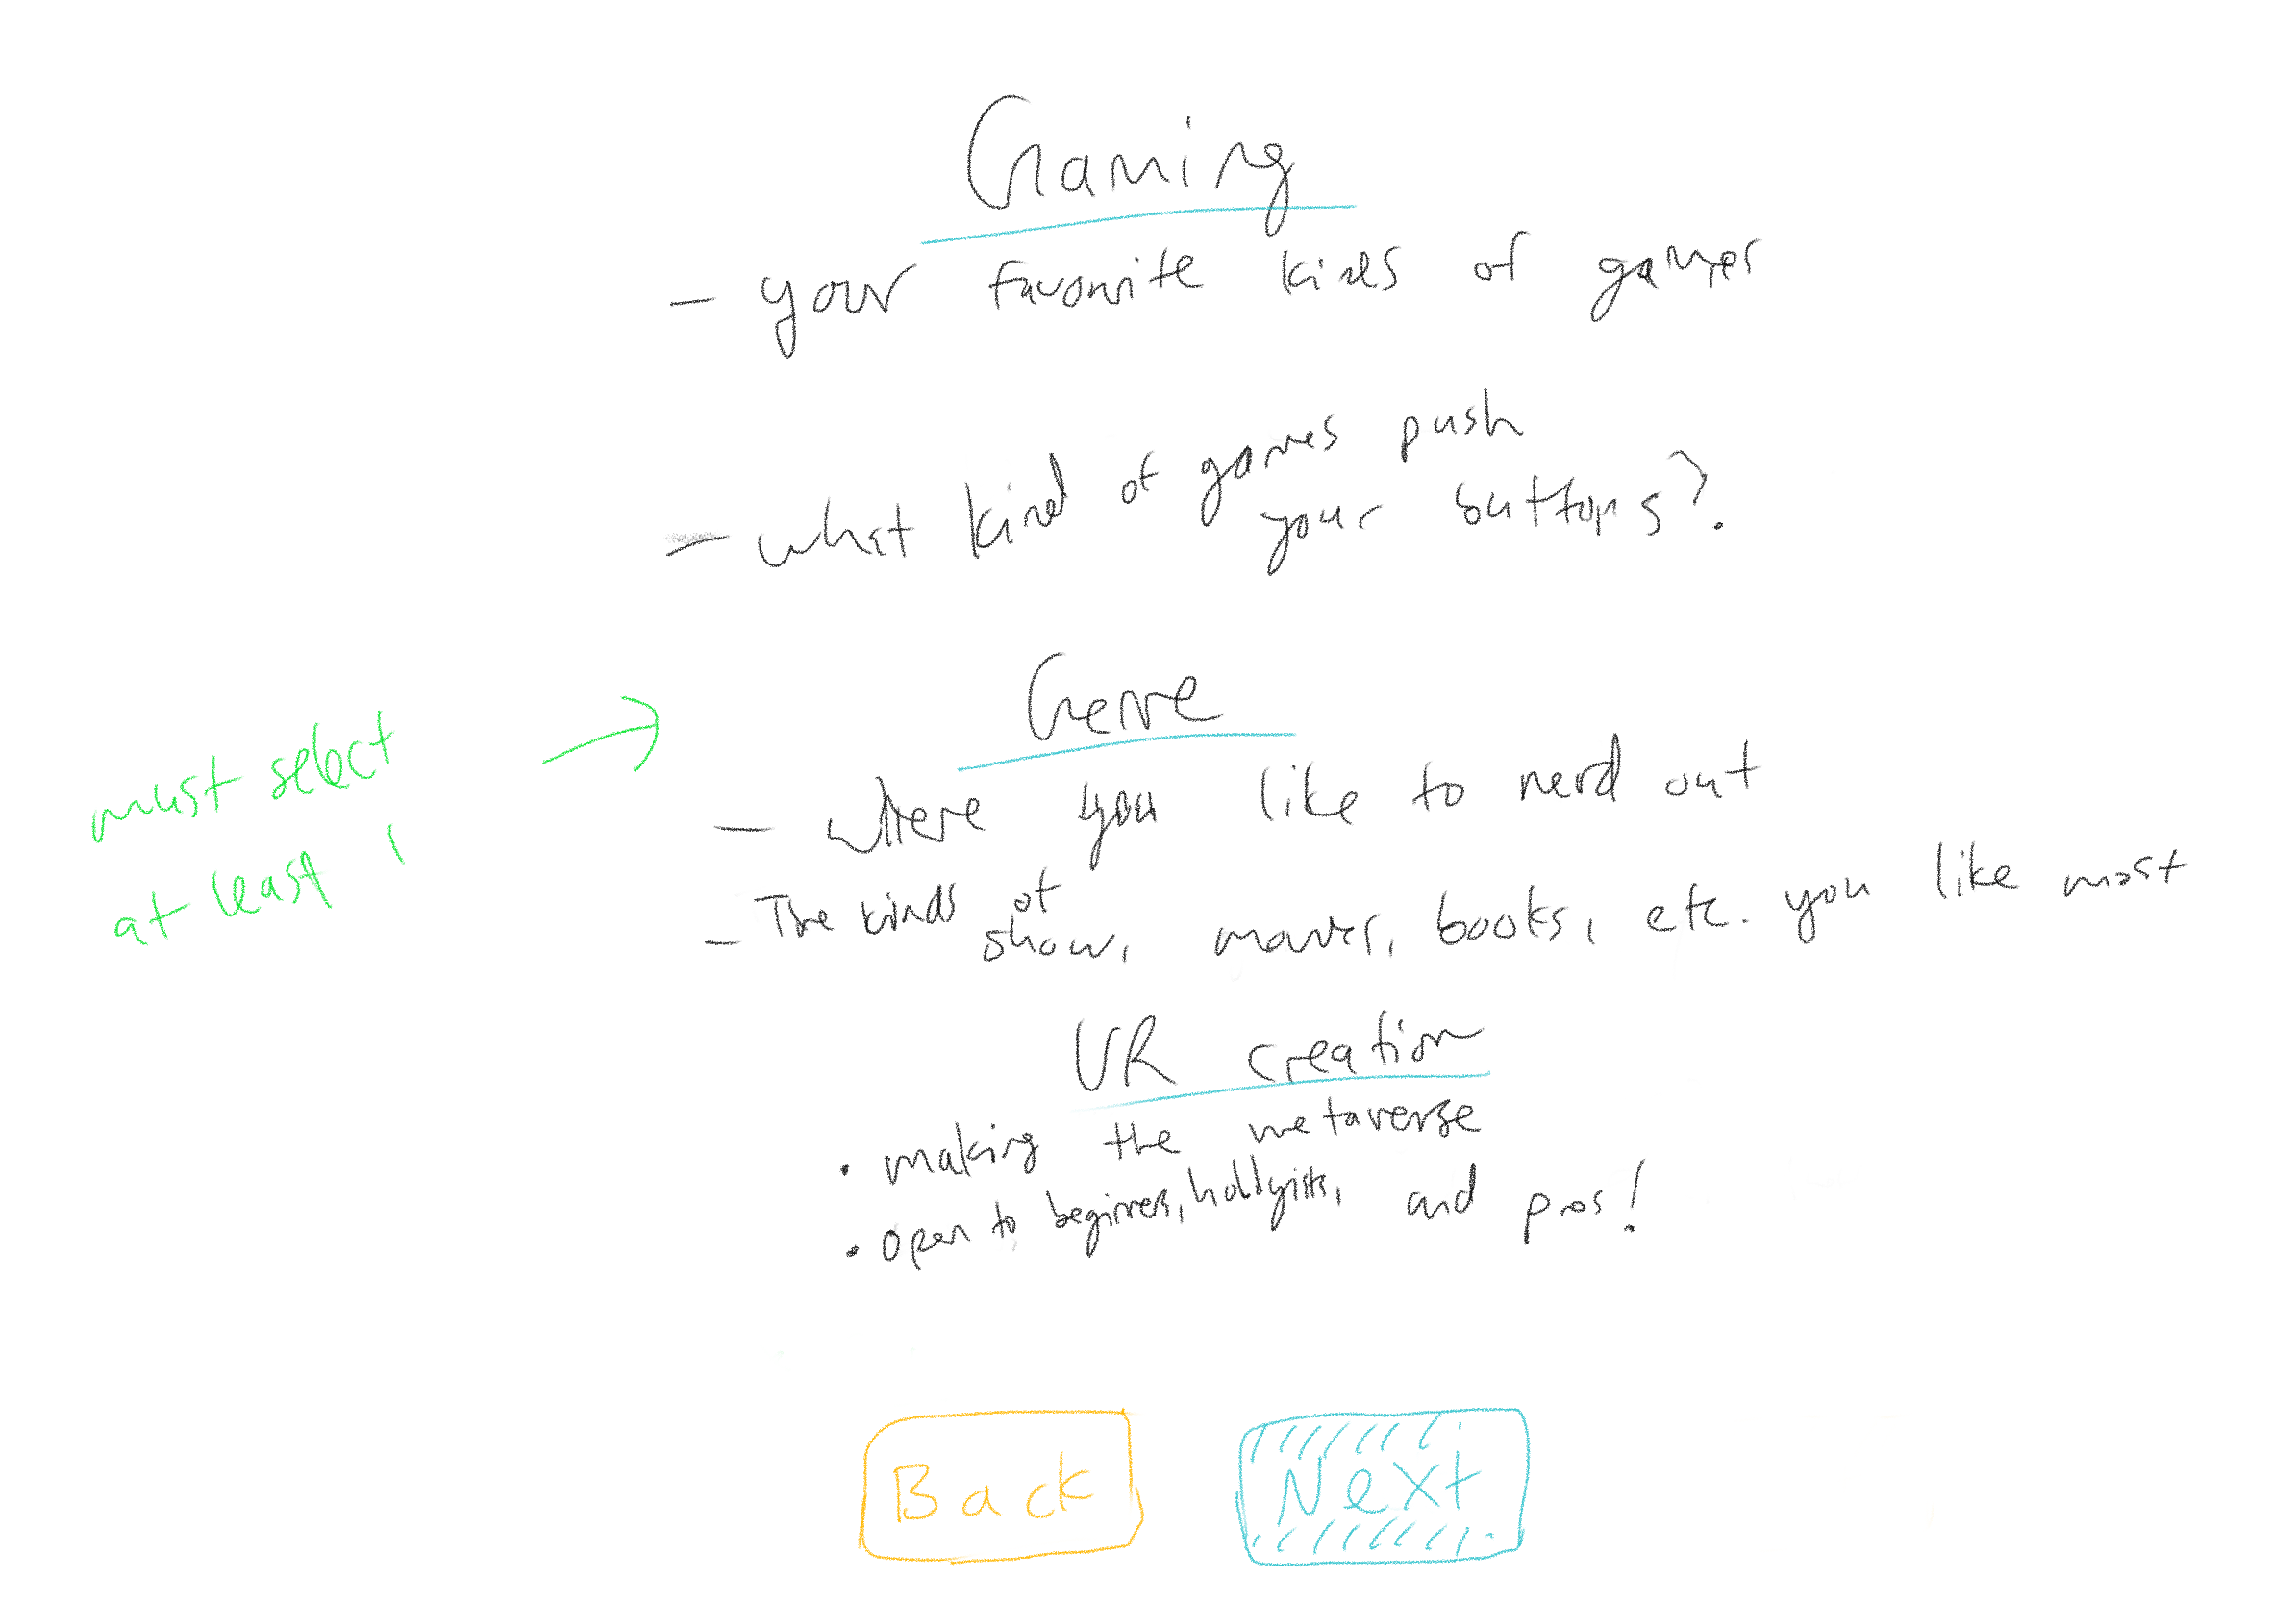 Gaming
- your favorite kinds of games
- what kind of games push
your buttons?
Genre
- where you like to nerd out
- The kinds of
show, movies, books, etc. you like most
must select
at least 1
VR creation
• making the metaverse
• open to beginners, hobbyists, and pros!
Back
Next